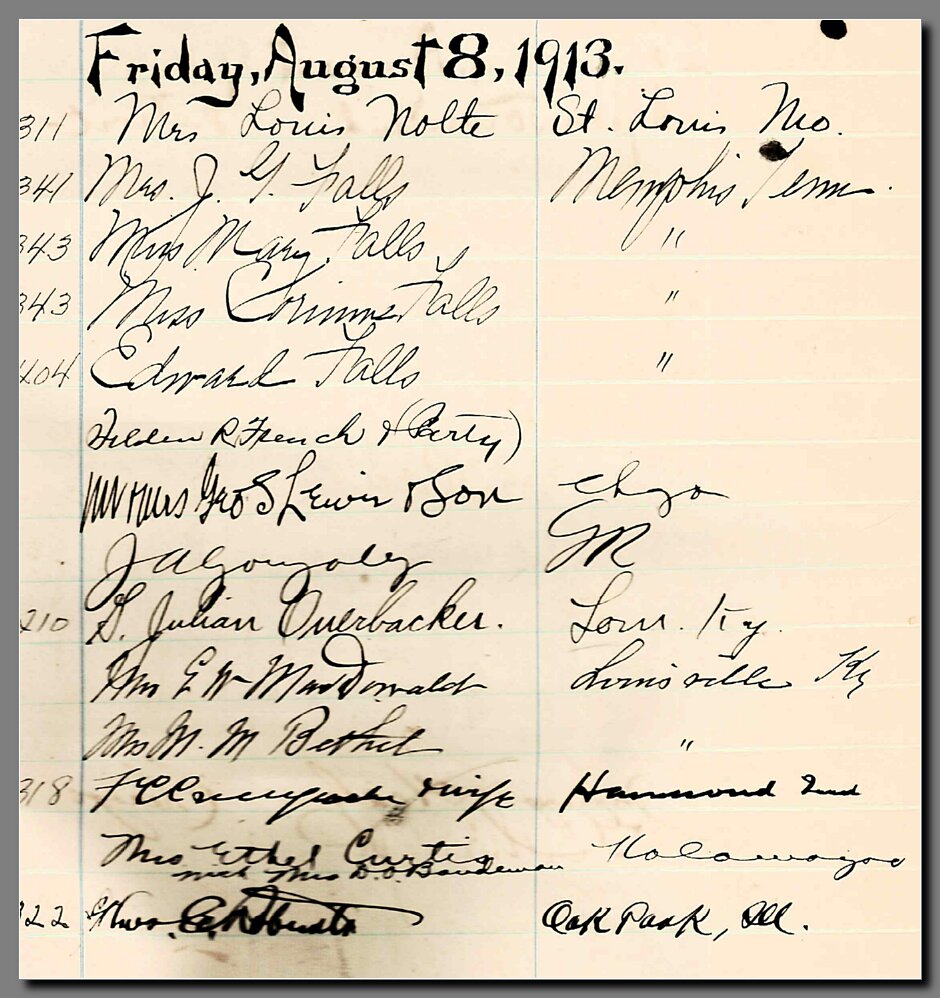 Friday, August 8, 1913.
311 Mrs Louis Nolte St. Louis Mo.
341 Mrs. J. G. Falls Memphis Tenn.
343 Miss Mary Falls "
343 Miss Corinne Falls "
404 Edward Falls "
R French & (Party)
Mr & Mrs Geo S Lewis & Son Chgo
J A Gonzales GR
210 D. Julian Overbacker. Lou. Ky.
Mrs E W MacDonald Louisville Ky
Mrs M. M Bethel "
318 & wife Hammond Ind
Mrs Ethel Curtis Kalamazoo
with Mrs D.O. Boudeman
Oak Park, Ill.